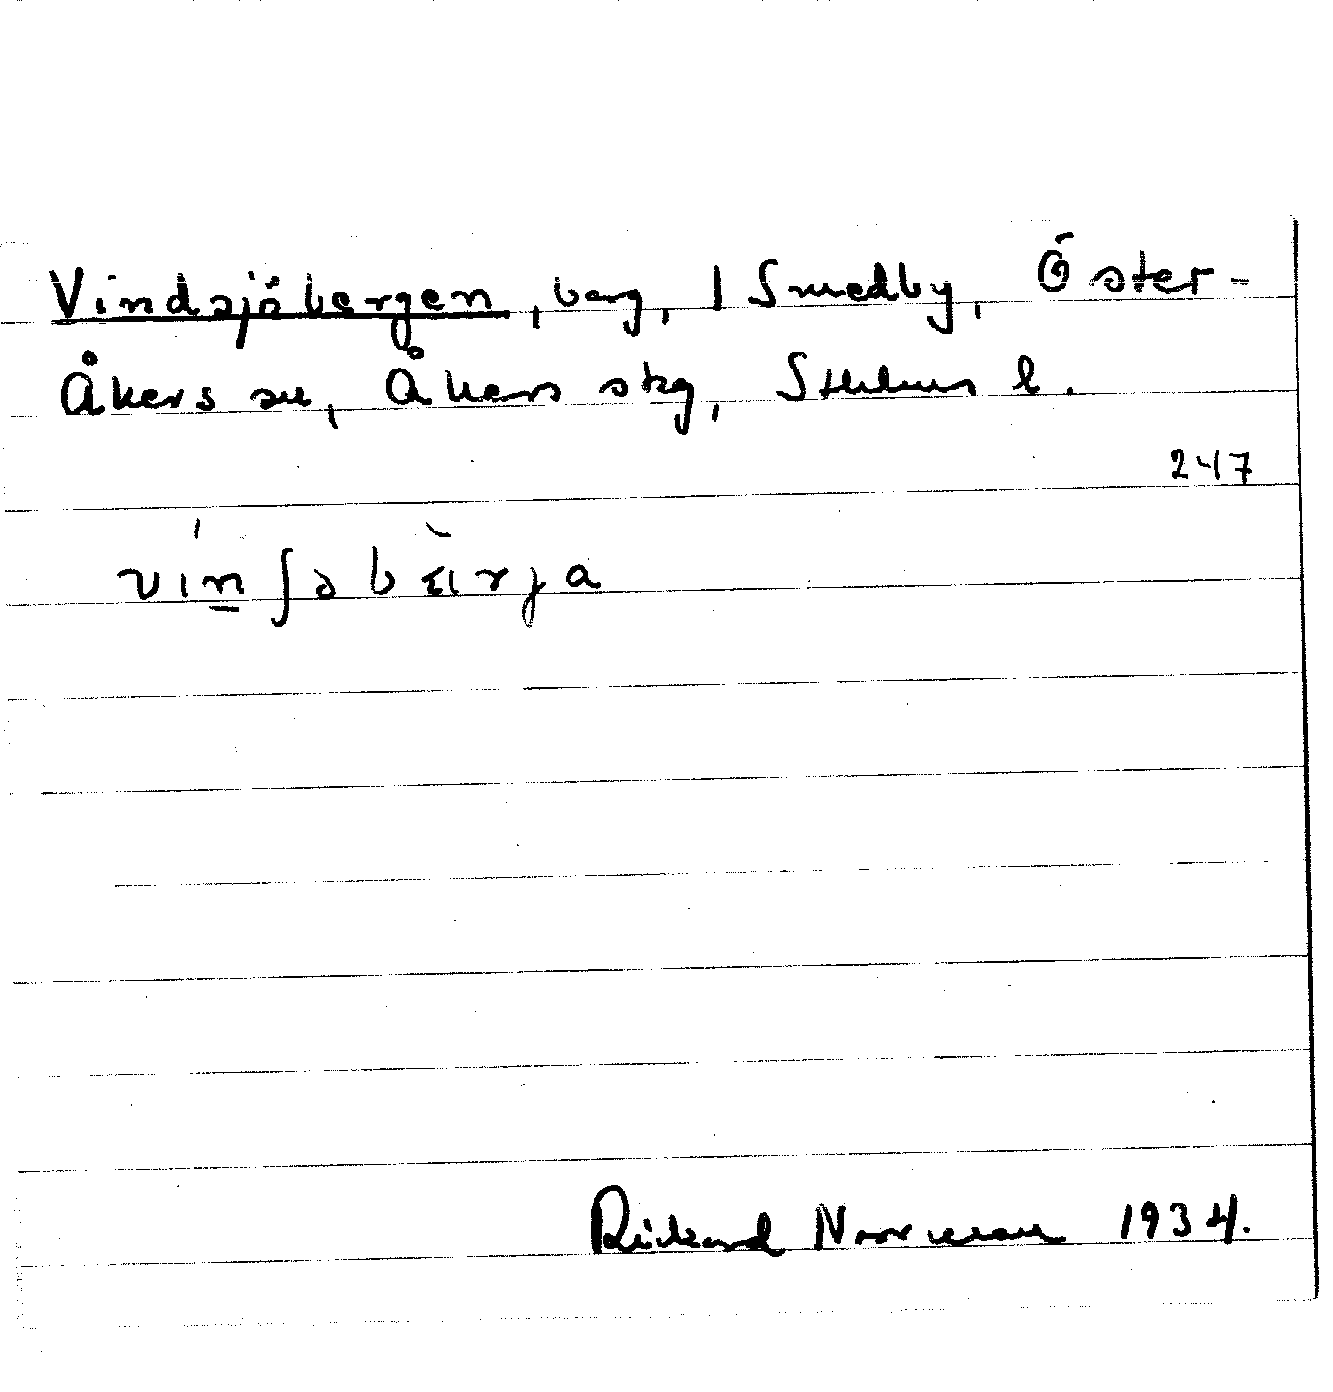 Vindsjöbergen, berg, 1 Smedby, Öster-
Åkers sn, Åkers skg, Sthlms l.
247
vin̲ʃəbàrja
Rickard Norrman 1934.